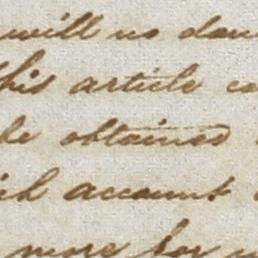 will no dou
this article co
be obtained
ich account
more for